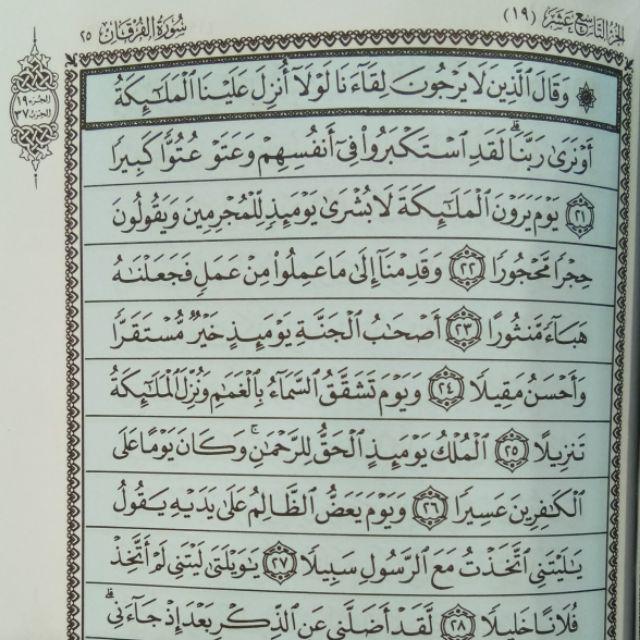 الجزء التاسع عشر (١٩)
سورة الفرقان ٢٥
الجزء ١٩
الحزب ٣٧
۞ وَقَالَ ٱلَّذِينَ لَا يَرْجُونَ لِقَآءَنَا لَوْلَآ أُنزِلَ عَلَيْنَا ٱلْمَلَٰٓئِكَةُ
أَوْ نَرَىٰ رَبَّنَا ۗ لَقَدِ ٱسْتَكْبَرُوا۟ فِىٓ أَنفُسِهِمْ وَعَتَوْ عُتُوًّا كَبِيرًا
٢١ يَوْمَ يَرَوْنَ ٱلْمَلَٰٓئِكَةَ لَا بُشْرَىٰ يَوْمَئِذٍ لِّلْمُجْرِمِينَ وَيَقُولُونَ
حِجْرًا مَّحْجُورًا ٢٢ وَقَدِمْنَآ إِلَىٰ مَا عَمِلُوا۟ مِنْ عَمَلٍ فَجَعَلْنَٰهُ
هَبَآءً مَّنثُورًا ٢٣ أَصْحَٰبُ ٱلْجَنَّةِ يَوْمَئِذٍ خَيْرٌ مُّسْتَقَرًّا
وَأَحْسَنُ مَقِيلًا ٢٤ وَيَوْمَ تَشَقَّقُ ٱلسَّمَآءُ بِٱلْغَمَٰمِ وَنُزِّلَ ٱلْمَلَٰٓئِكَةُ
تَنزِيلًا ٢٥ ٱلْمُلْكُ يَوْمَئِذٍ ٱلْحَقُّ لِلرَّحْمَٰنِ ۚ وَكَانَ يَوْمًا عَلَى
ٱلْكَٰفِرِينَ عَسِيرًا ٢٦ وَيَوْمَ يَعَضُّ ٱلظَّالِمُ عَلَىٰ يَدَيْهِ يَقُولُ
يَٰلَيْتَنِى ٱتَّخَذْتُ مَعَ ٱلرَّسُولِ سَبِيلًا ٢٧ يَٰوَيْلَتَىٰ لَيْتَنِى لَمْ أَتَّخِذْ
فُلَانًا خَلِيلًا ٢٨ لَّقَدْ أَضَلَّنِى عَنِ ٱلذِّكْرِ بَعْدَ إِذْ جَآءَنِى ۗ